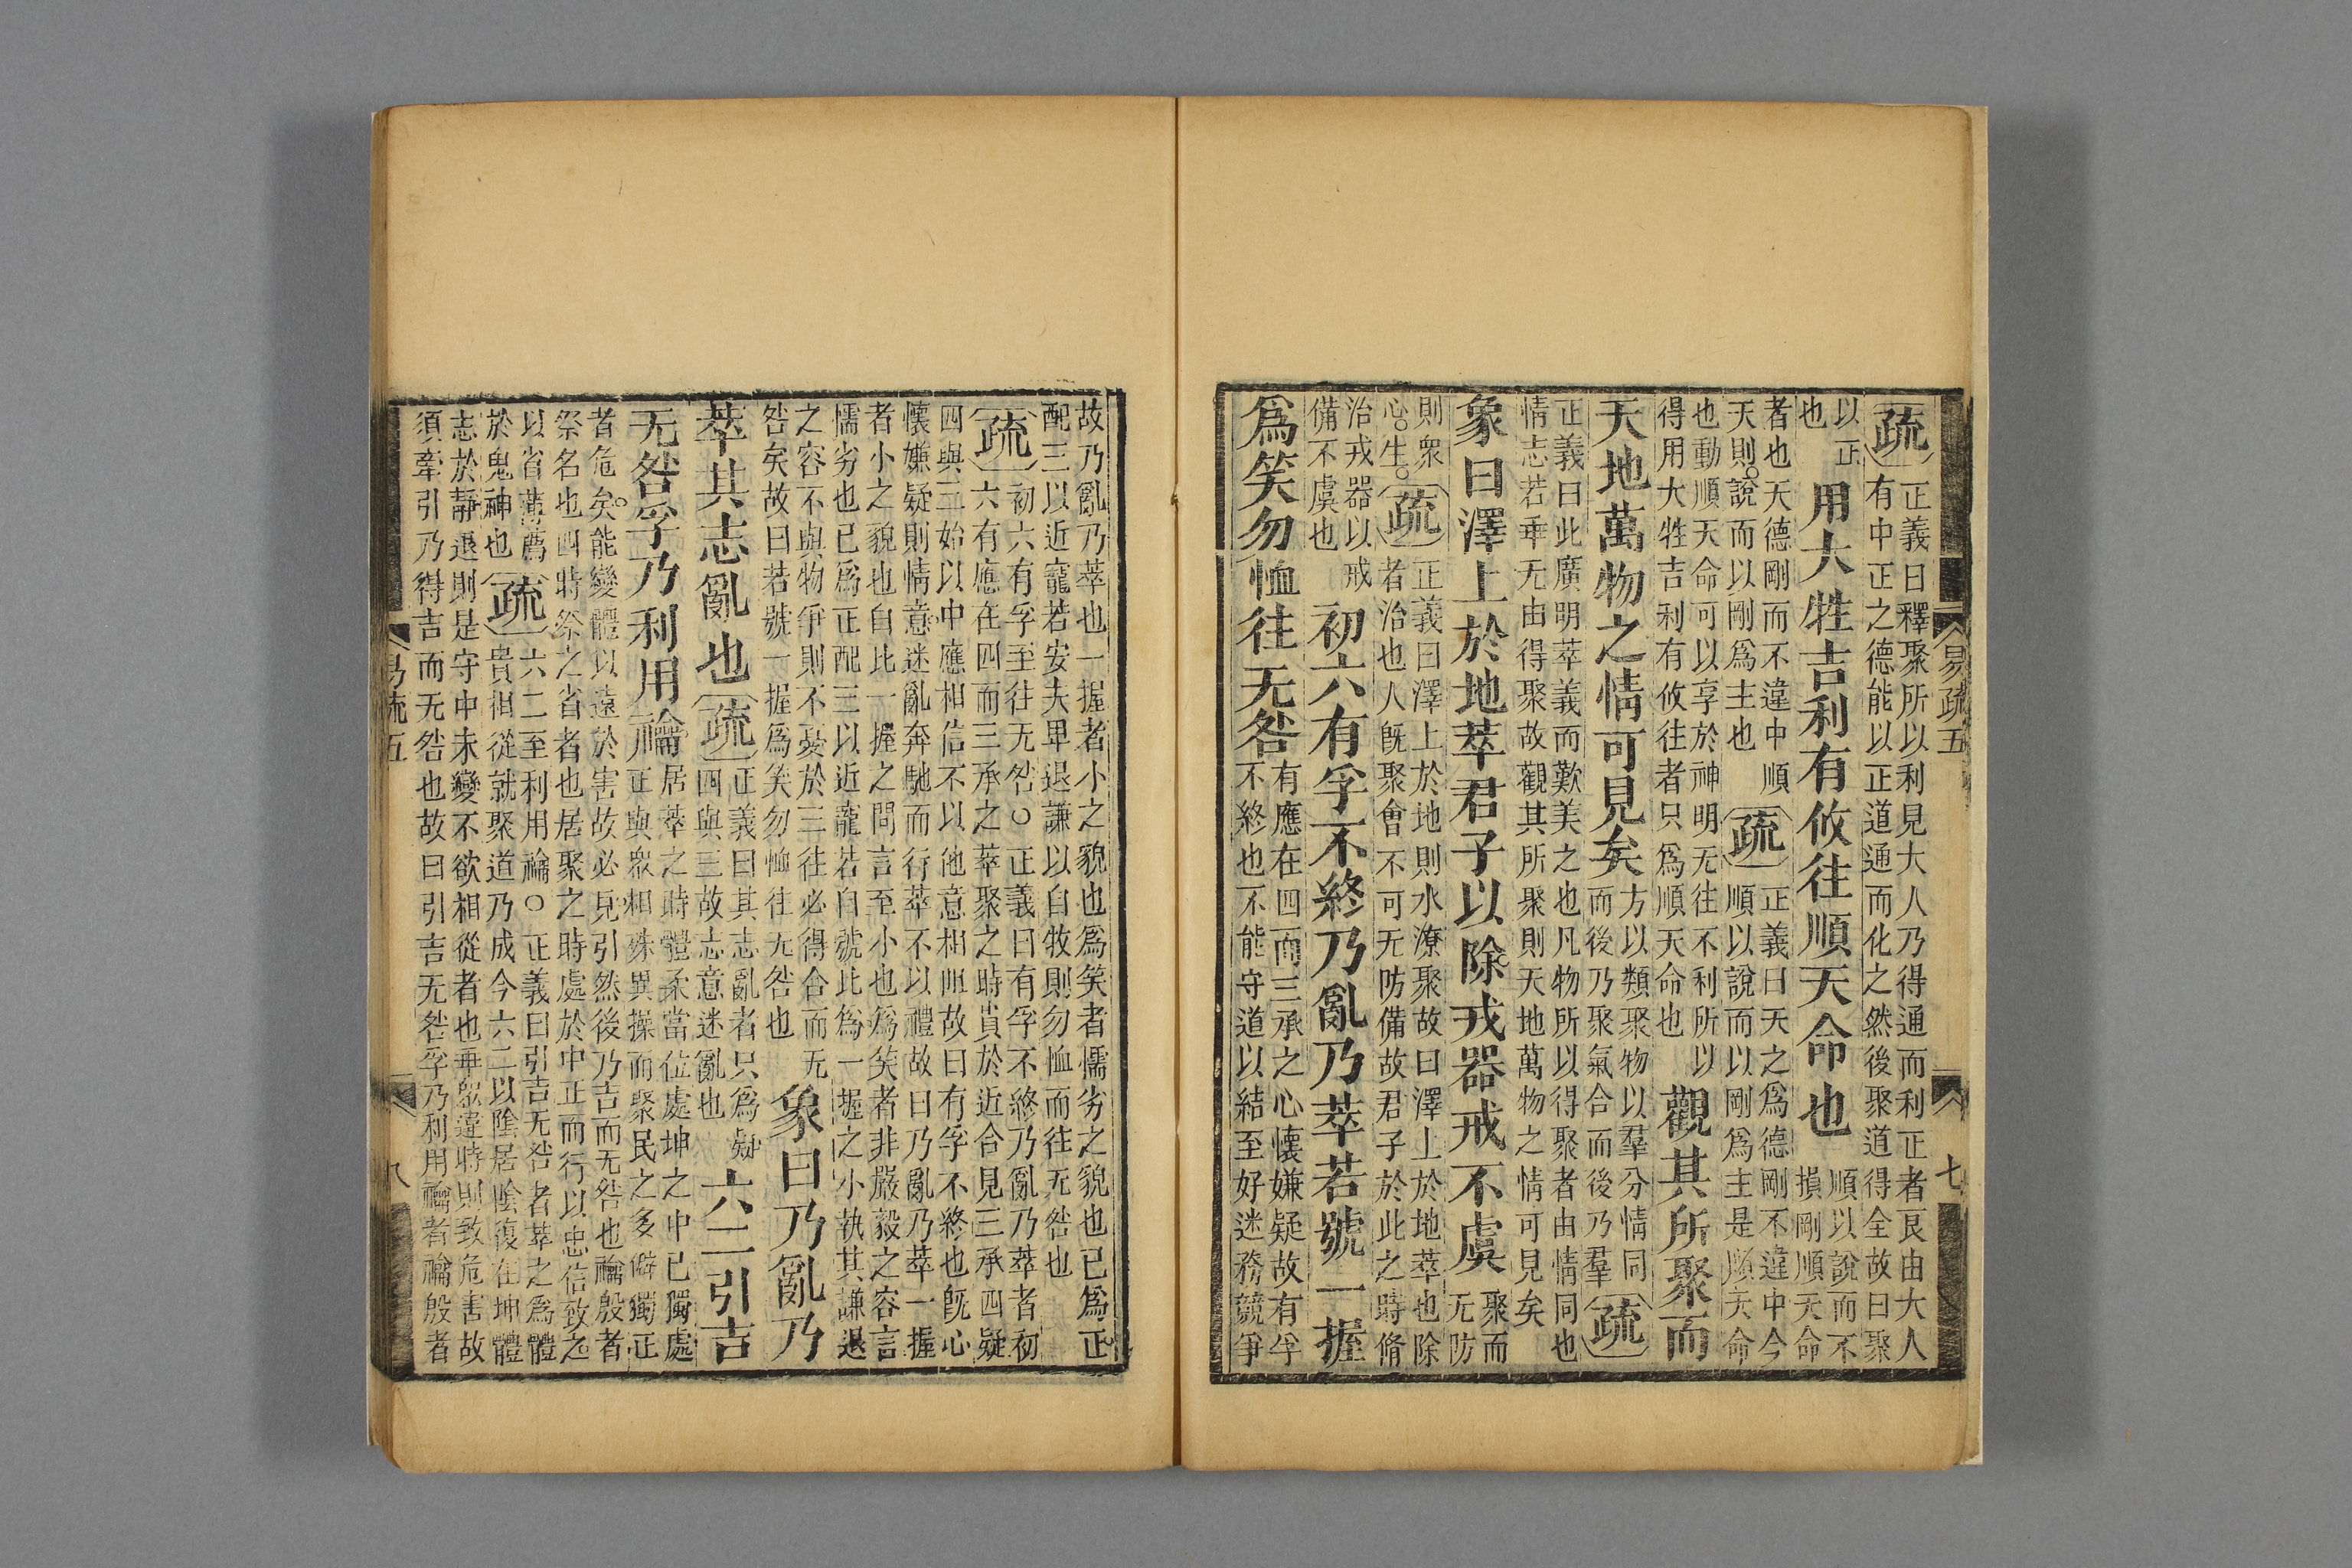 易疏五 七
疏
正義曰釋聚所以利見大人乃得通而利正者良由大人
有中正之德能以正道通而化之然後聚道得全故曰聚
以正
也
用大牲吉利有攸往順天命也
順以說而不
損剛順天命
者也天德剛而不違中順
天則說而以剛爲主也
疏
正義曰天之爲德剛不違中今
順以說而以剛爲主是順天命
也動順天命可以享於神明无往不利所以
得用大牲吉利有攸往者只爲順天命也
觀其所聚而
天地萬物之情可見矣
方以類聚物以羣分情同
而後乃聚氣合而後乃羣
疏
正義曰此廣明萃義而歎美之也凡物所以得聚者由情同也
情志若乖无由得聚故觀其所聚則天地萬物之情可見矣
象曰澤上於地萃君子以除戎器戒不虞
聚而
无防
則衆
心生
疏
正義曰澤上於地則水潦聚故曰澤上於地萃也除
者治也人旣聚會不可无防備故君子於此之時脩
治戎器以戒
備不虞也
初六有孚不終乃亂乃萃若號一握
爲笑勿恤往无咎
有應在四而三承之心懷嫌疑故有孚
不終也不能守道以結至好迷務競爭
故乃亂乃萃也一握者小之貌也爲笑者懦劣之貌也已爲正
配三以近寵若安夫卑退謙以自牧則勿恤而往无咎也
疏
初六有孚至往无咎○正義曰有孚不終乃亂乃萃者初
六有應在四而三承之萃聚之時貴於近合見三承四疑
四與三始以中應相信不以他意相阻故曰有孚不終也旣心
懷嫌疑則情意迷亂奔馳而行萃不以禮故曰乃亂乃萃一握
者小之貌也自比一握之間言至小也爲笑者非嚴毅之容言
懦劣也已爲正配三以近寵若自號比爲一握之小執其謙退
之容不與物爭則不憂於三往必得合而无
咎矣故曰若號一握爲笑勿恤往无咎也
象曰乃亂乃
萃其志亂也
疏
正義曰其志亂者只爲疑
四與三故志意迷亂也
六二引吉
无咎孚乃利用禴
居萃之時體柔當位處坤之中已獨處
正與衆相殊異操而聚民之多僻獨正
者危矣能變體以遠於害故必見引然後乃吉而无咎也禴殷者
祭名也四時祭之省者也居聚之時處於中正而行以忠信致之
以省薄薦
於鬼神也
疏
六二至利用禴○正義曰引吉无咎者萃之爲體
貴相從就聚道乃成今六二以陰居陰復在坤體
志於靜退則是守中未變不欲相從者也乖衆違時則致危害故
須牽引乃得吉而无咎也故曰引吉无咎孚乃利用禴者禴殷者
易疏五 八